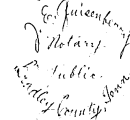 E. Quisenberry
Notary
Public.
Bradley County, Tenn